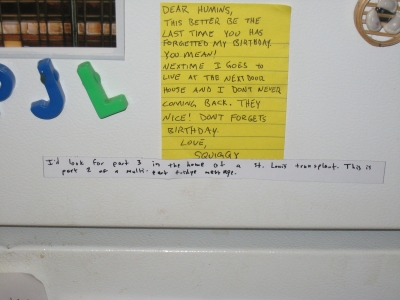 DEAR HUMINS,
THIS BETTER BE THE
LAST TIME YOU HAS
FORGETTED MY BIRTHDAY.
YOU MEAN!
NEXTIME I GOES TO
LIVE AT THE NEXTDOOR
HOUSE AND I DON'T NEVER
COMING BACK. THEY
NICE! DONT FORGETS
BIRTHDAY.
LOVE,
SQUIGGY
I'd look for part 3 in the home of a St. Louis transplant. This is
part 2 of a multi-part fridge message.
P J L